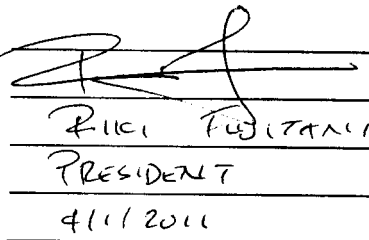 RIKI FUJITANI
PRESIDENT
4/1/2011